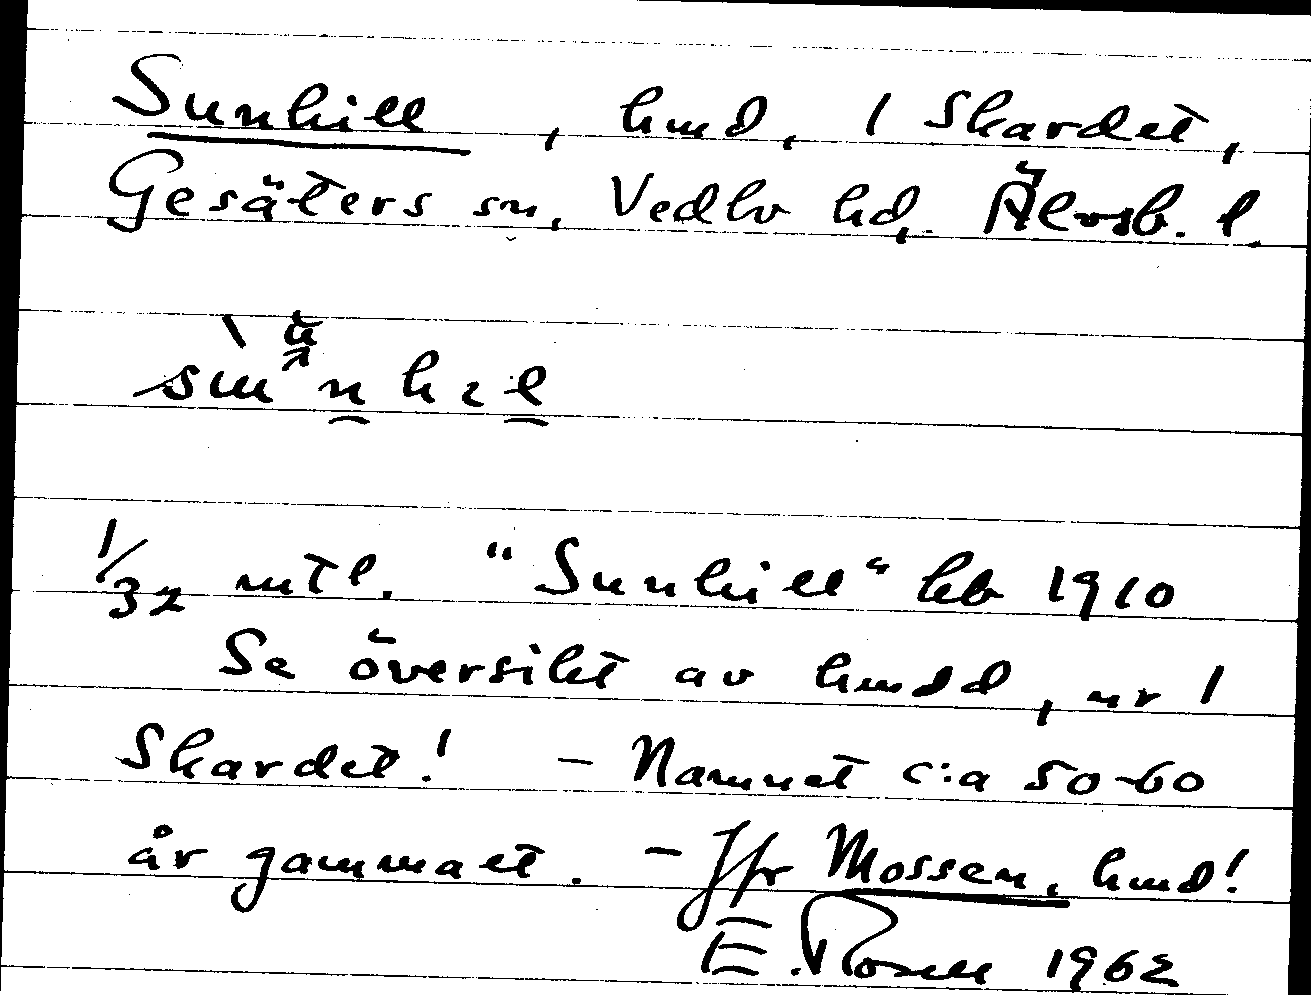 Sunhill, hmd, 1 Skardet,
Gesäters sn, Vedbo hd, Älvsb. l.
1/32 mtl. "Sunhill" kb 1910
Se översikt av hmdd, nr 1
Skardet! – Namnet c:a 50-60
år gammalt. – Jfr Mossen, hmd!
E. Rosell 1962